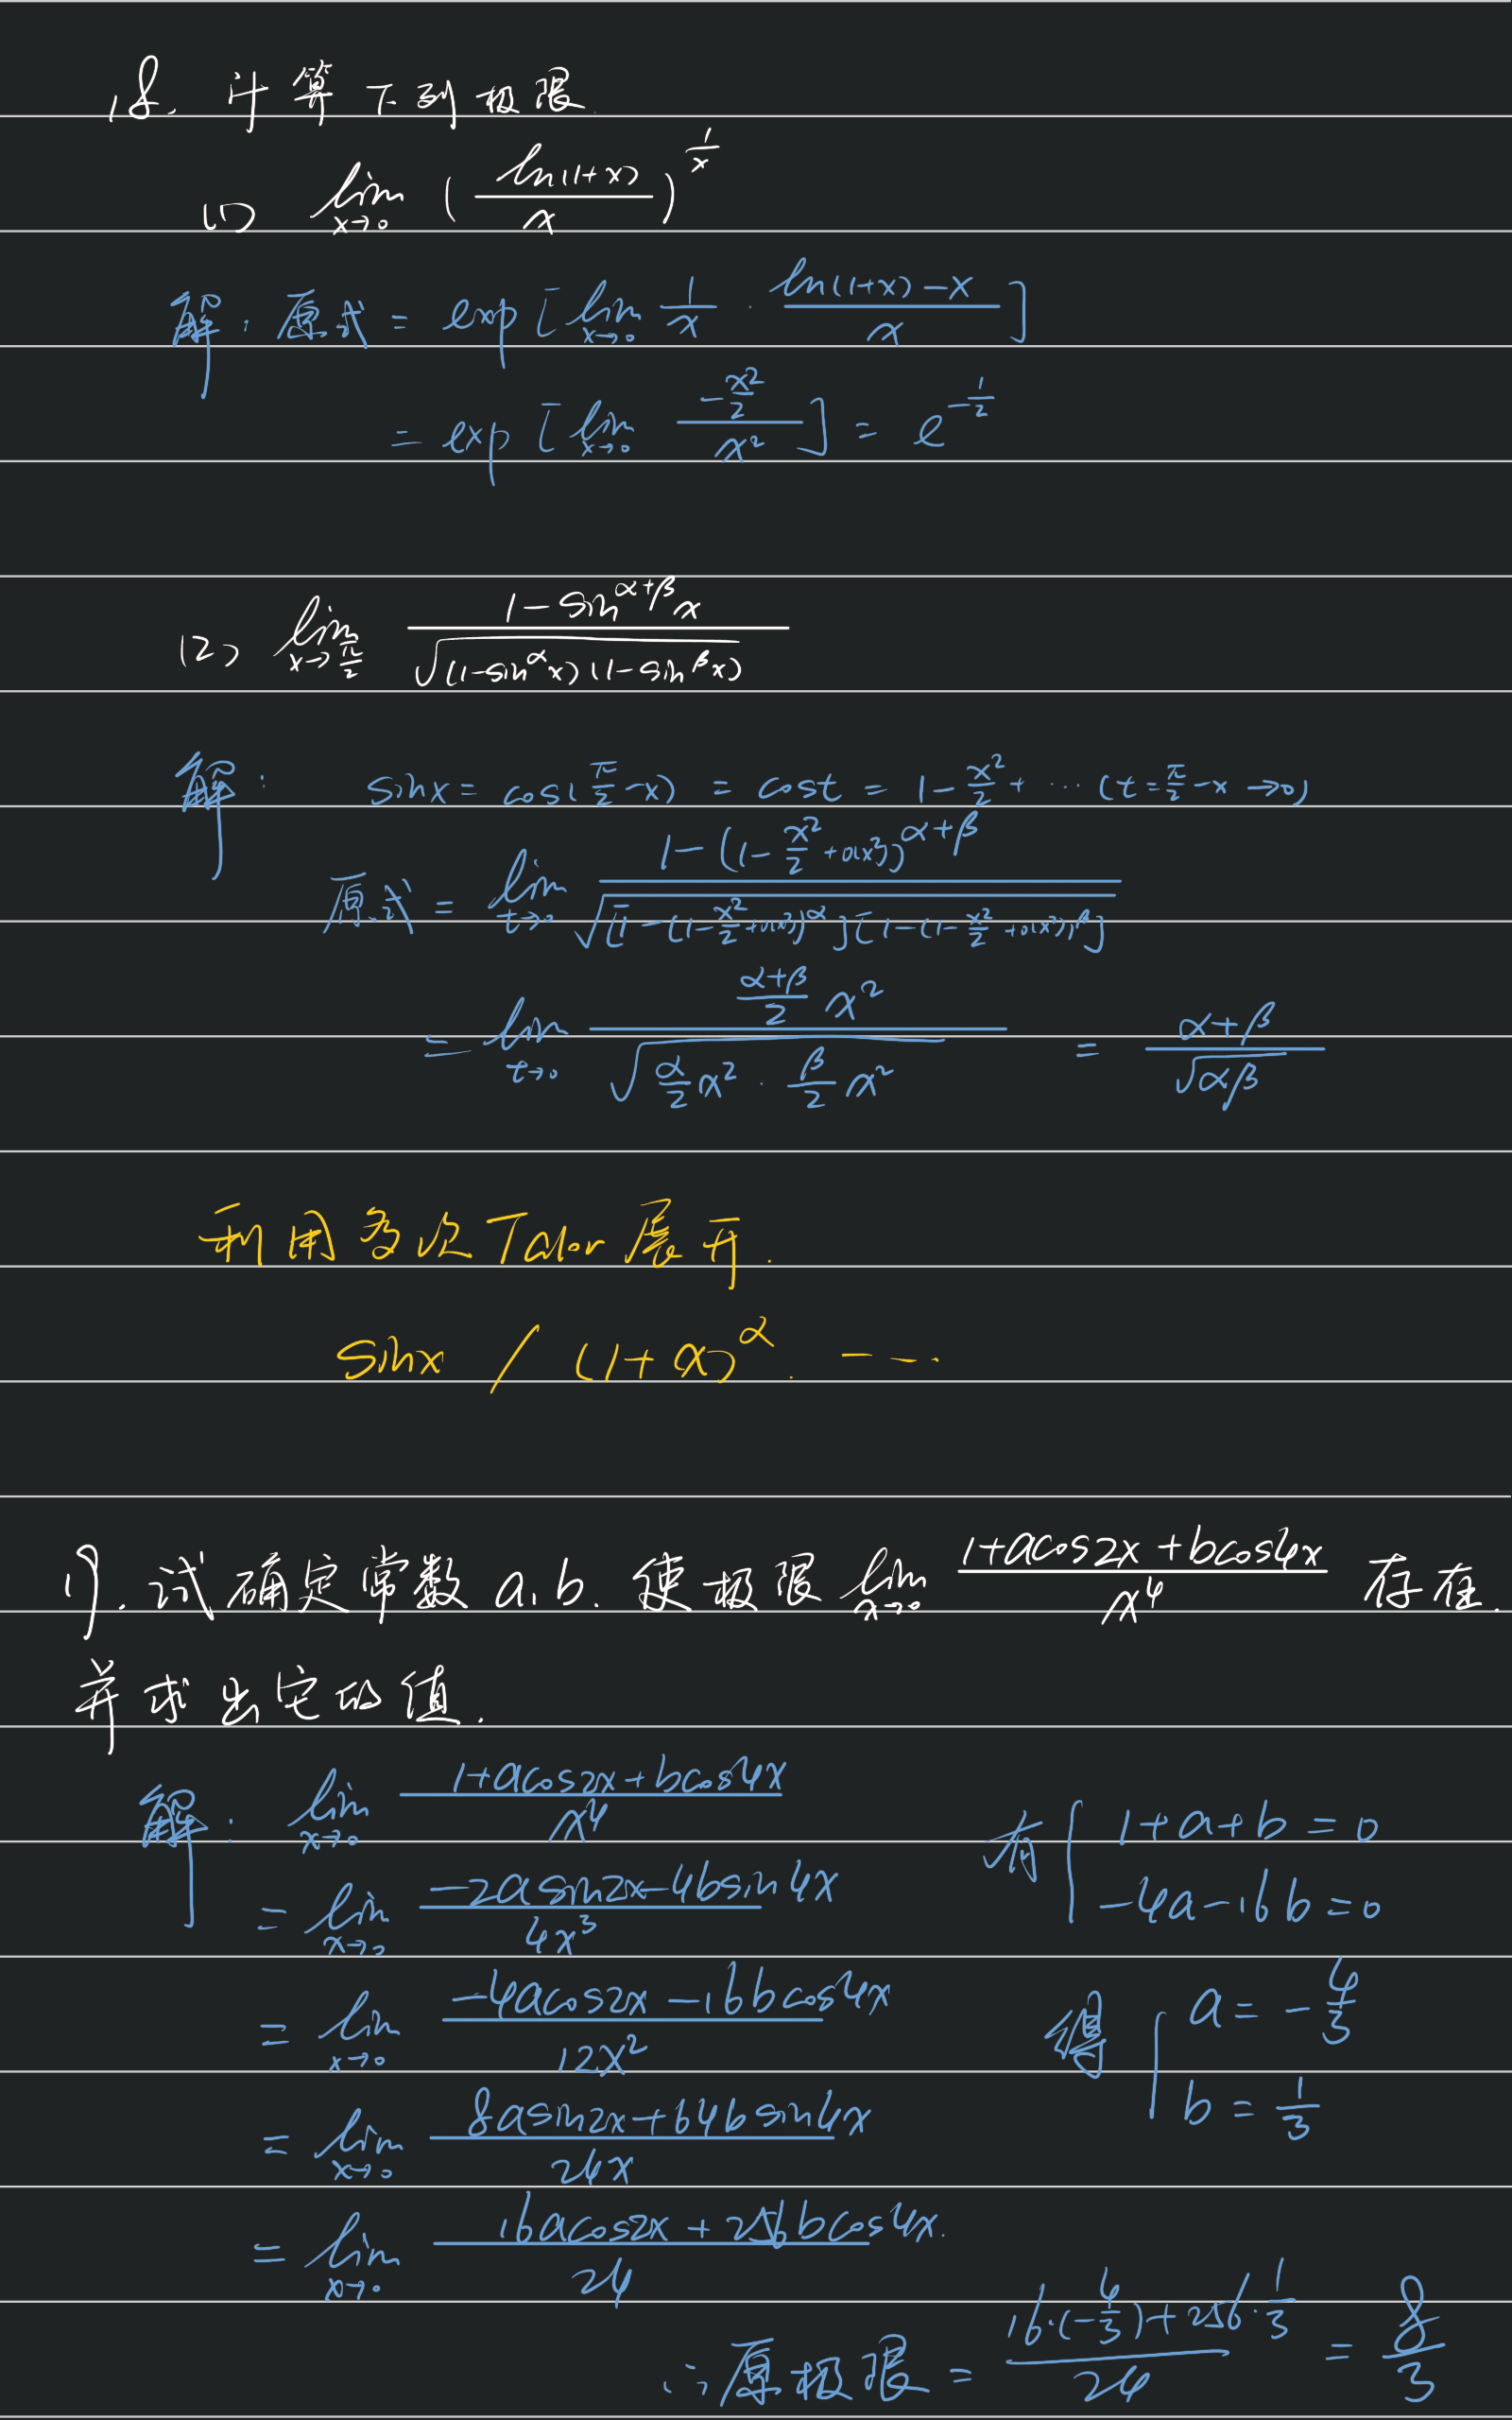 18. 计算下列极限.
(1) lim_{x→0} (ln(1+x)/x)^{1/x}
解: 原式 = exp[lim_{x→0} 1/x · (ln(1+x)-x)/x]
= exp[lim_{x→0} (-x²/2)/x²] = e^{-1/2}
(2) lim_{x→π/2} (1-sin^{α+β}x)/√((1-sin^α x)(1-sin^β x))
解: sinx = cos(π/2-x) = cost = 1-x²/2+ ⋯ (t=π/2-x→0)
原式 = lim_{t→0} (1-(1-x²/2+o(x²))^{α+β})/√([1-(1-x²/2+o(x²))^α][1-(1-x²/2+o(x²))^β])
= lim_{t→0} ((α+β)/2 x²)/√(α/2 x² · β/2 x²) = (α+β)/√(αβ)
利用多次Talor展开.
sinx / (1+x)^α. ----
19. 试确定常数a,b. 使极限 lim_{x→0} (1+acos2x+bcos4x)/x⁴ 存在.
并求出它的值.
解: lim_{x→0} (1+acos2x+bcos4x)/x⁴
= lim_{x→0} (-2asin2x-4bsin4x)/4x³
= lim_{x→0} (-4acos2x-16bcos4x)/12x²
= lim_{x→0} (8asin2x+64bsin4x)/24x
= lim_{x→0} (16acos2x+256bcos4x)/24
有 { 1+a+b=0
-4a-16b=0
得 { a=-4/3
b=1/3
∴原极限 = (16·(-4/3)+256·1/3)/24 = 8/3